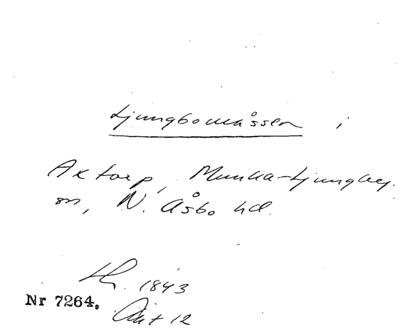 Ljungbomossen i
Axtorp, Munka-Ljungby
sn, N. Åsbo hd.
1843
Nr 7264. Akt 12